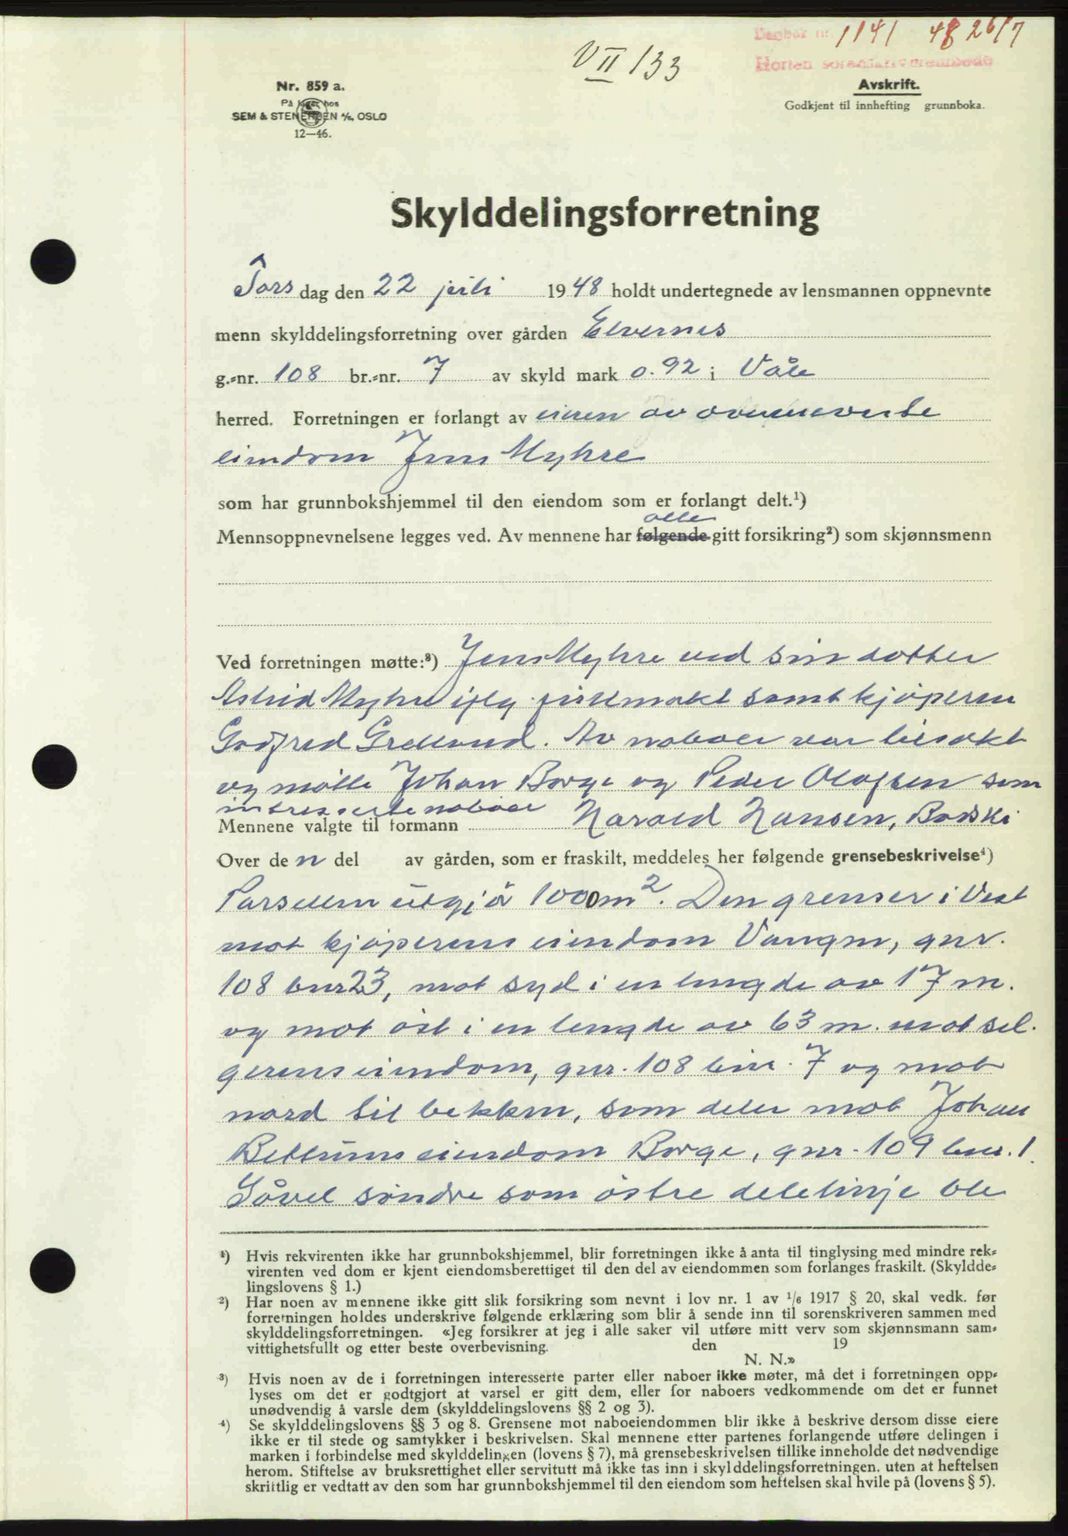 Dagbok nr. 1141 48 26/7
Horten sorenskriverembede
V II 133
Avskrift.
Godkjent til innhefting grunnboka.
Nr. 859 a.
På lager hos
SEM & STENERSEN A/S, OSLO
12—46.
Skylddelingsforretning
Tors dag den 22 juli 1948 holdt undertegnede av lensmannen oppnevnte
menn skylddelingsforretning over gården Elvernes
g.-nr. 108 br.-nr. 7 av skyld mark 0.92 i Våle
herred. Forretningen er forlangt av eieren av ovennevnte
eiendom Jens Myhre
som har grunnbokshjemmel til den eiendom som er forlangt delt.¹)
alle
Mennsoppnevnelsene legges ved. Av mennene har følgende gitt forsikring²) som skjønnsmenn
Ved forretningen møtte:³) Jens Myhre ved sin dotter
Astrid Myhre iflg fullmakt samt kjøperen
Godfred Grelland. Av naboer var
og møtte Johan Borge og Peder Olafsen som
intresserte naboer
Mennene valgte til formann Harald Hansen,
Over de n del av gården, som er fraskilt, meddeles her følgende grensebeskrivelse⁴)
Parsellen utgjør 1000 m². Den grenser i Vest
mot kjøperens eiendom Vangen, gnr.
108 bnr 23, mot syd i en lengde av 17 m.
og mot øst i en lengde av 63 m. mot sel-
gerens eiendom, gnr. 108 bnr. 7 og mot
nord til bekken, som deler mot Johan
Bettums eiendom Borge, gnr. 109 bnr. 1.
Såvel søndre som østre delelinje ble
¹) Hvis rekvirenten ikke har grunnbokshjemmel, blir forretningen ikke å anta til tinglysing med mindre rek-
virenten ved dom er kjent eiendomsberettiget til den del av eiendommen som forlanges fraskilt. (Skyldde-
lingslovens § 1.)
²) Har noen av mennene ikke gitt slik forsikring som nevnt i lov nr. 1 av 1/6 1917 § 20, skal vedk. før
forretningen holdes underskrive følgende erklæring som blir å sende inn til sorenskriveren sammen med
skylddelingsforretningen. «Jeg forsikrer at jeg i alle saker vil utføre mitt verv som skjønnsmann sam-
vittighetsfullt og etter beste overbevisning. den 19
N. N.»
³) Hvis noen av de i forretningen interesserte parter eller naboer ikke møter, må det i forretningen opp-
lyses om det er godtgjort at varsel er gitt dem, eller for naboers vedkommende om det er funnet
unødvendig å varsle dem (skylddelingslovens §§ 2 og 3).
⁴) Se skylddelingslovens §§ 3 og 8. Grensene mot naboeiendommen blir ikke å beskrive dersom disse eiere
ikke er til stede og samtykker i beskrivelsen. Skal mennene etter partenes forlangende utføre delingen i
marken i forbindelse med skylddelingen (lovens § 7), må grensebeskrivelsen tillike inneholde det nødvendige
herom. Stiftelse av bruksrettighet eller servitutt må ikke tas inn i skylddelingsforretningen, uten at heftelsen
skriftlig er vedtatt av den som har grunnbokshjemmel til den eiendom som heftelsen skal hvile på (lovens § 5).